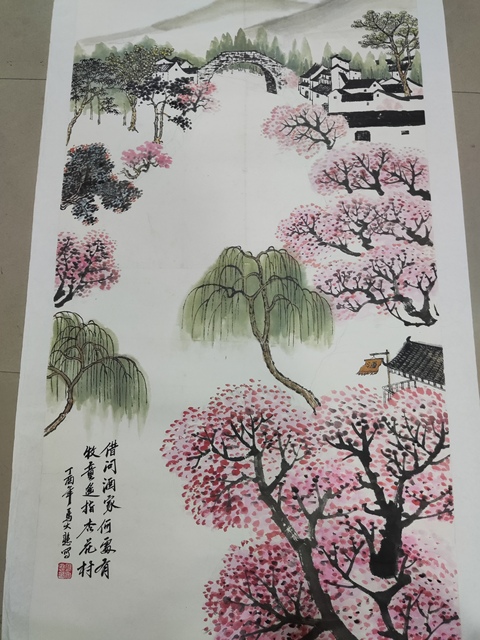 借问酒家何处有
牧童遥指杏花村
丁酉年馬大慧写